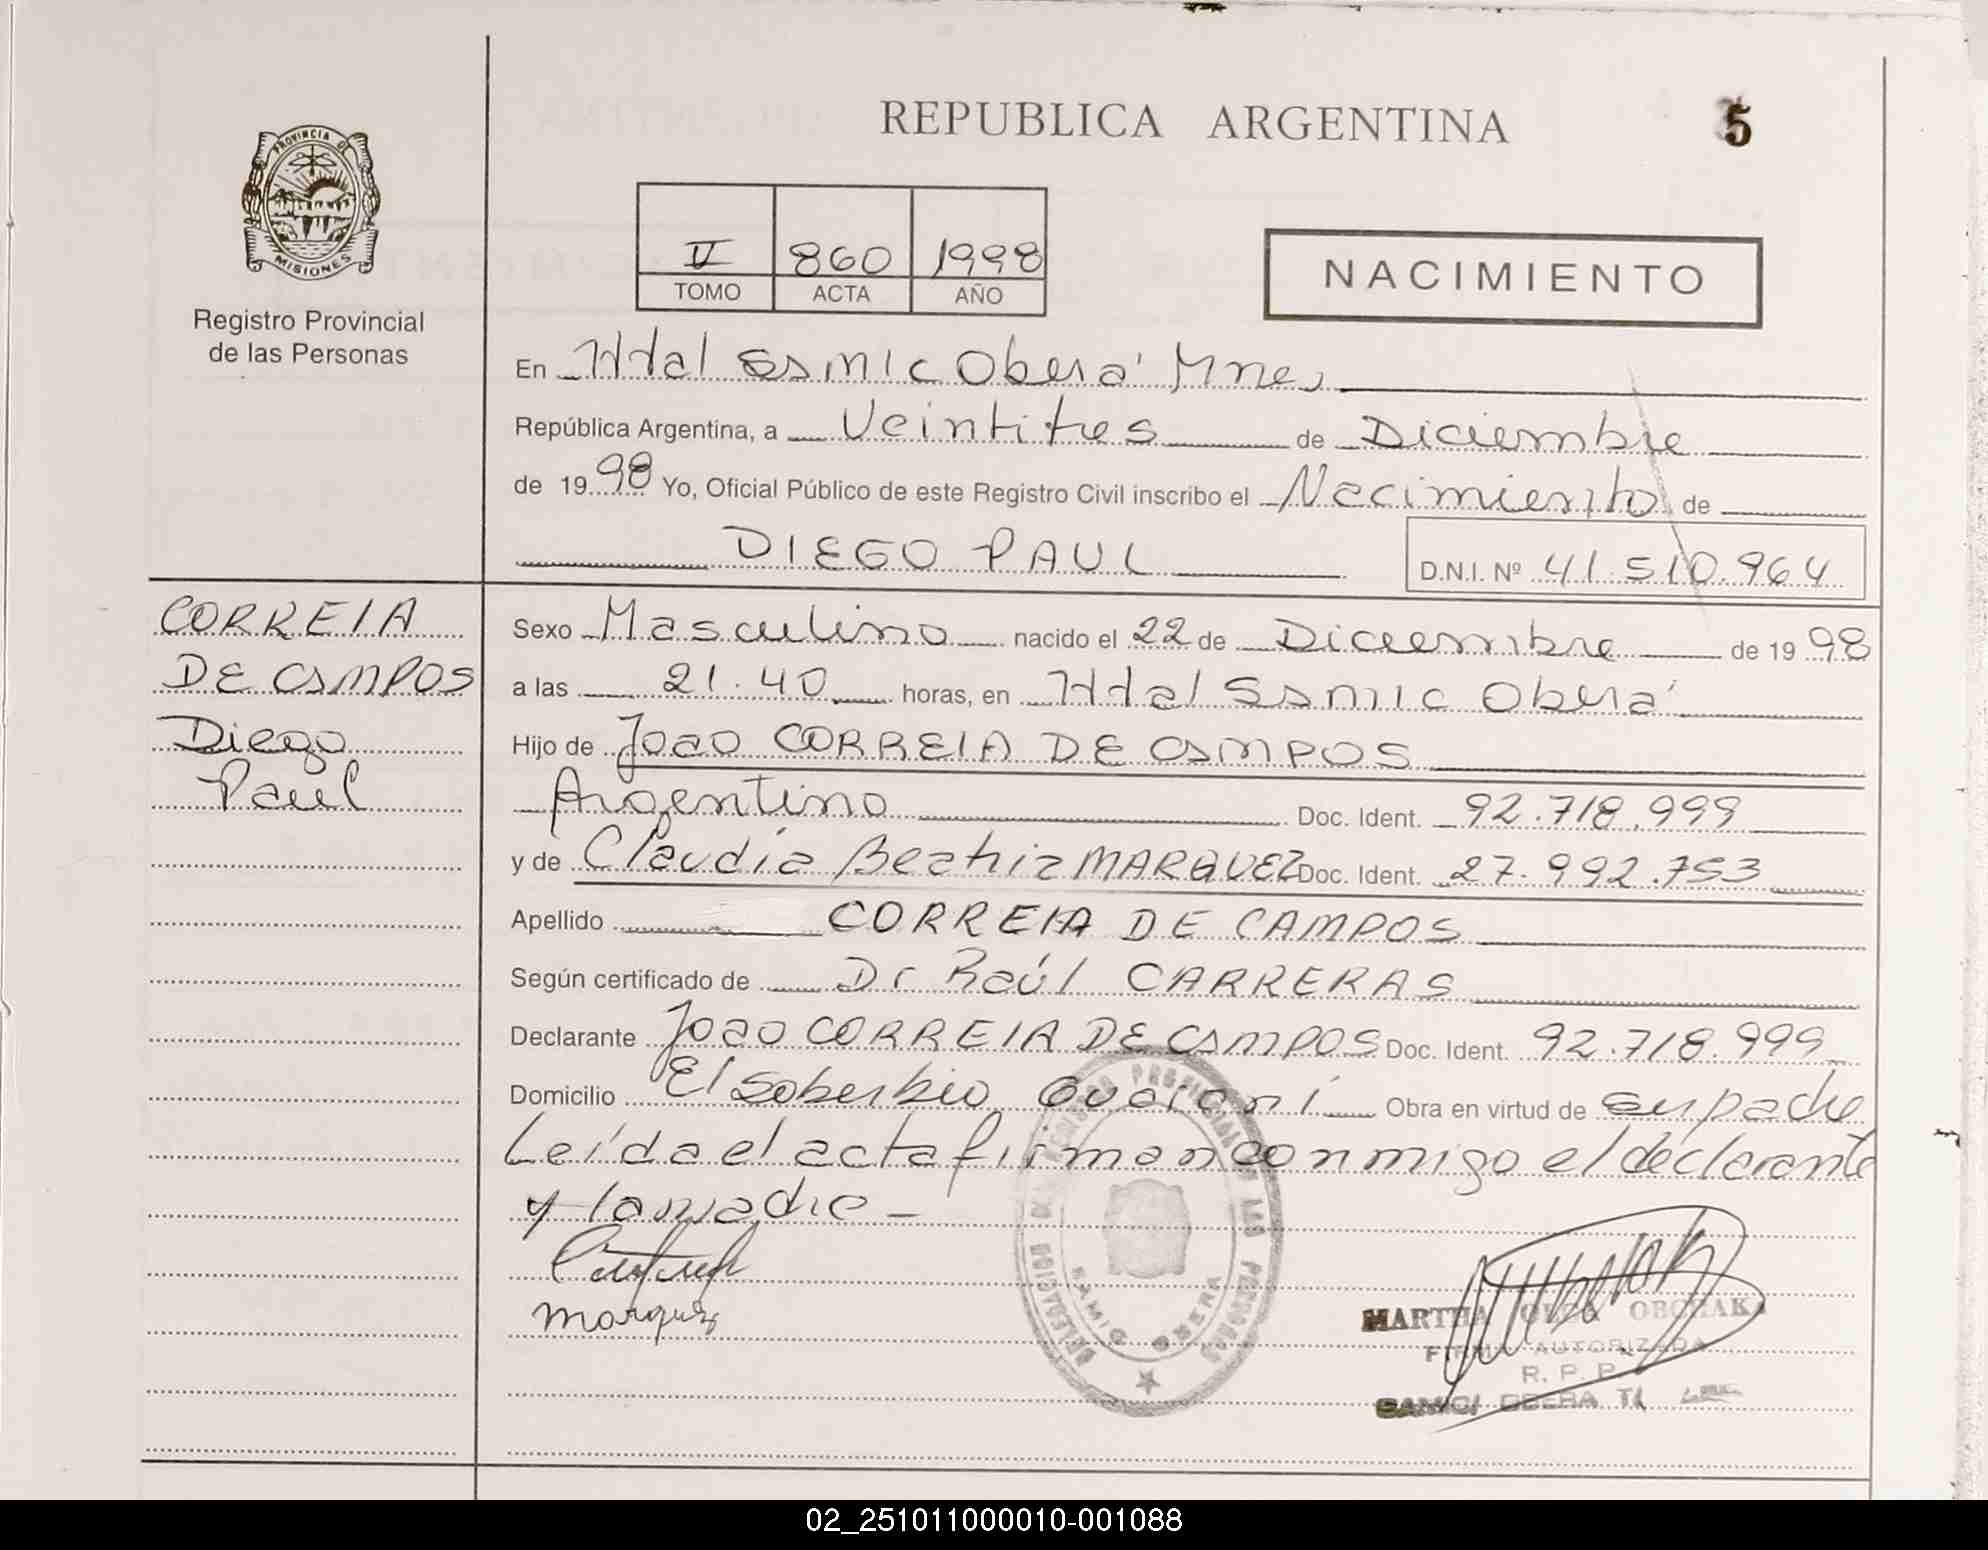 REPUBLICA ARGENTINA
5
PROVINCIA DE
MISIONES
Registro Provincial
de las Personas
V 860 1998
TOMO ACTA AÑO
NACIMIENTO
En HHal SSMIC Oberá Mnes
República Argentina, a Veintitres de Diciembre
de 1998 Yo, Oficial Público de este Registro Civil inscribo el Nacimiento de
DIEGO PAUL D.N.I. Nº 41.510.964
CORREIA
DE CAMPOS
Diego
Paul
Sexo Masculino nacido el 22 de Diciembre de 1998
a las 21.40 horas, en HHal SSMIC Oberá
Hijo de Joao CORREIA DE CAMPOS
Argentino Doc. Ident. 92.718.999
y de Claudia Beatriz MARQUEZ Doc. Ident. 27.992.753
Apellido CORREIA DE CAMPOS
Según certificado de Dr Raúl CARRERAS
Declarante Joao CORREIA DE CAMPOS Doc. Ident. 92.718.999
Domicilio El Soberbio Guaraní Obra en virtud de ser padre
Leída el acta firman conmigo el declarante
y la madre
marquez
DELEGACION DEL REGISTRO PROVINCIAL DE LAS PERSONAS
SAMIC OBERA
MARTHA OLGA
FIRMA AUTORIZADA
R. P. P.
SAMIC OBERA
02_251011000010-001088